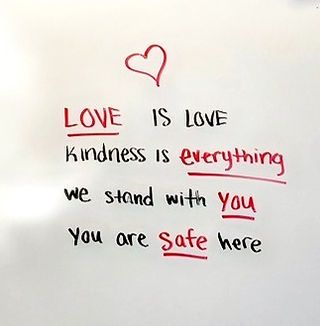 LOVE IS LOVE
Kindness is everything
we stand with you
You are safe here